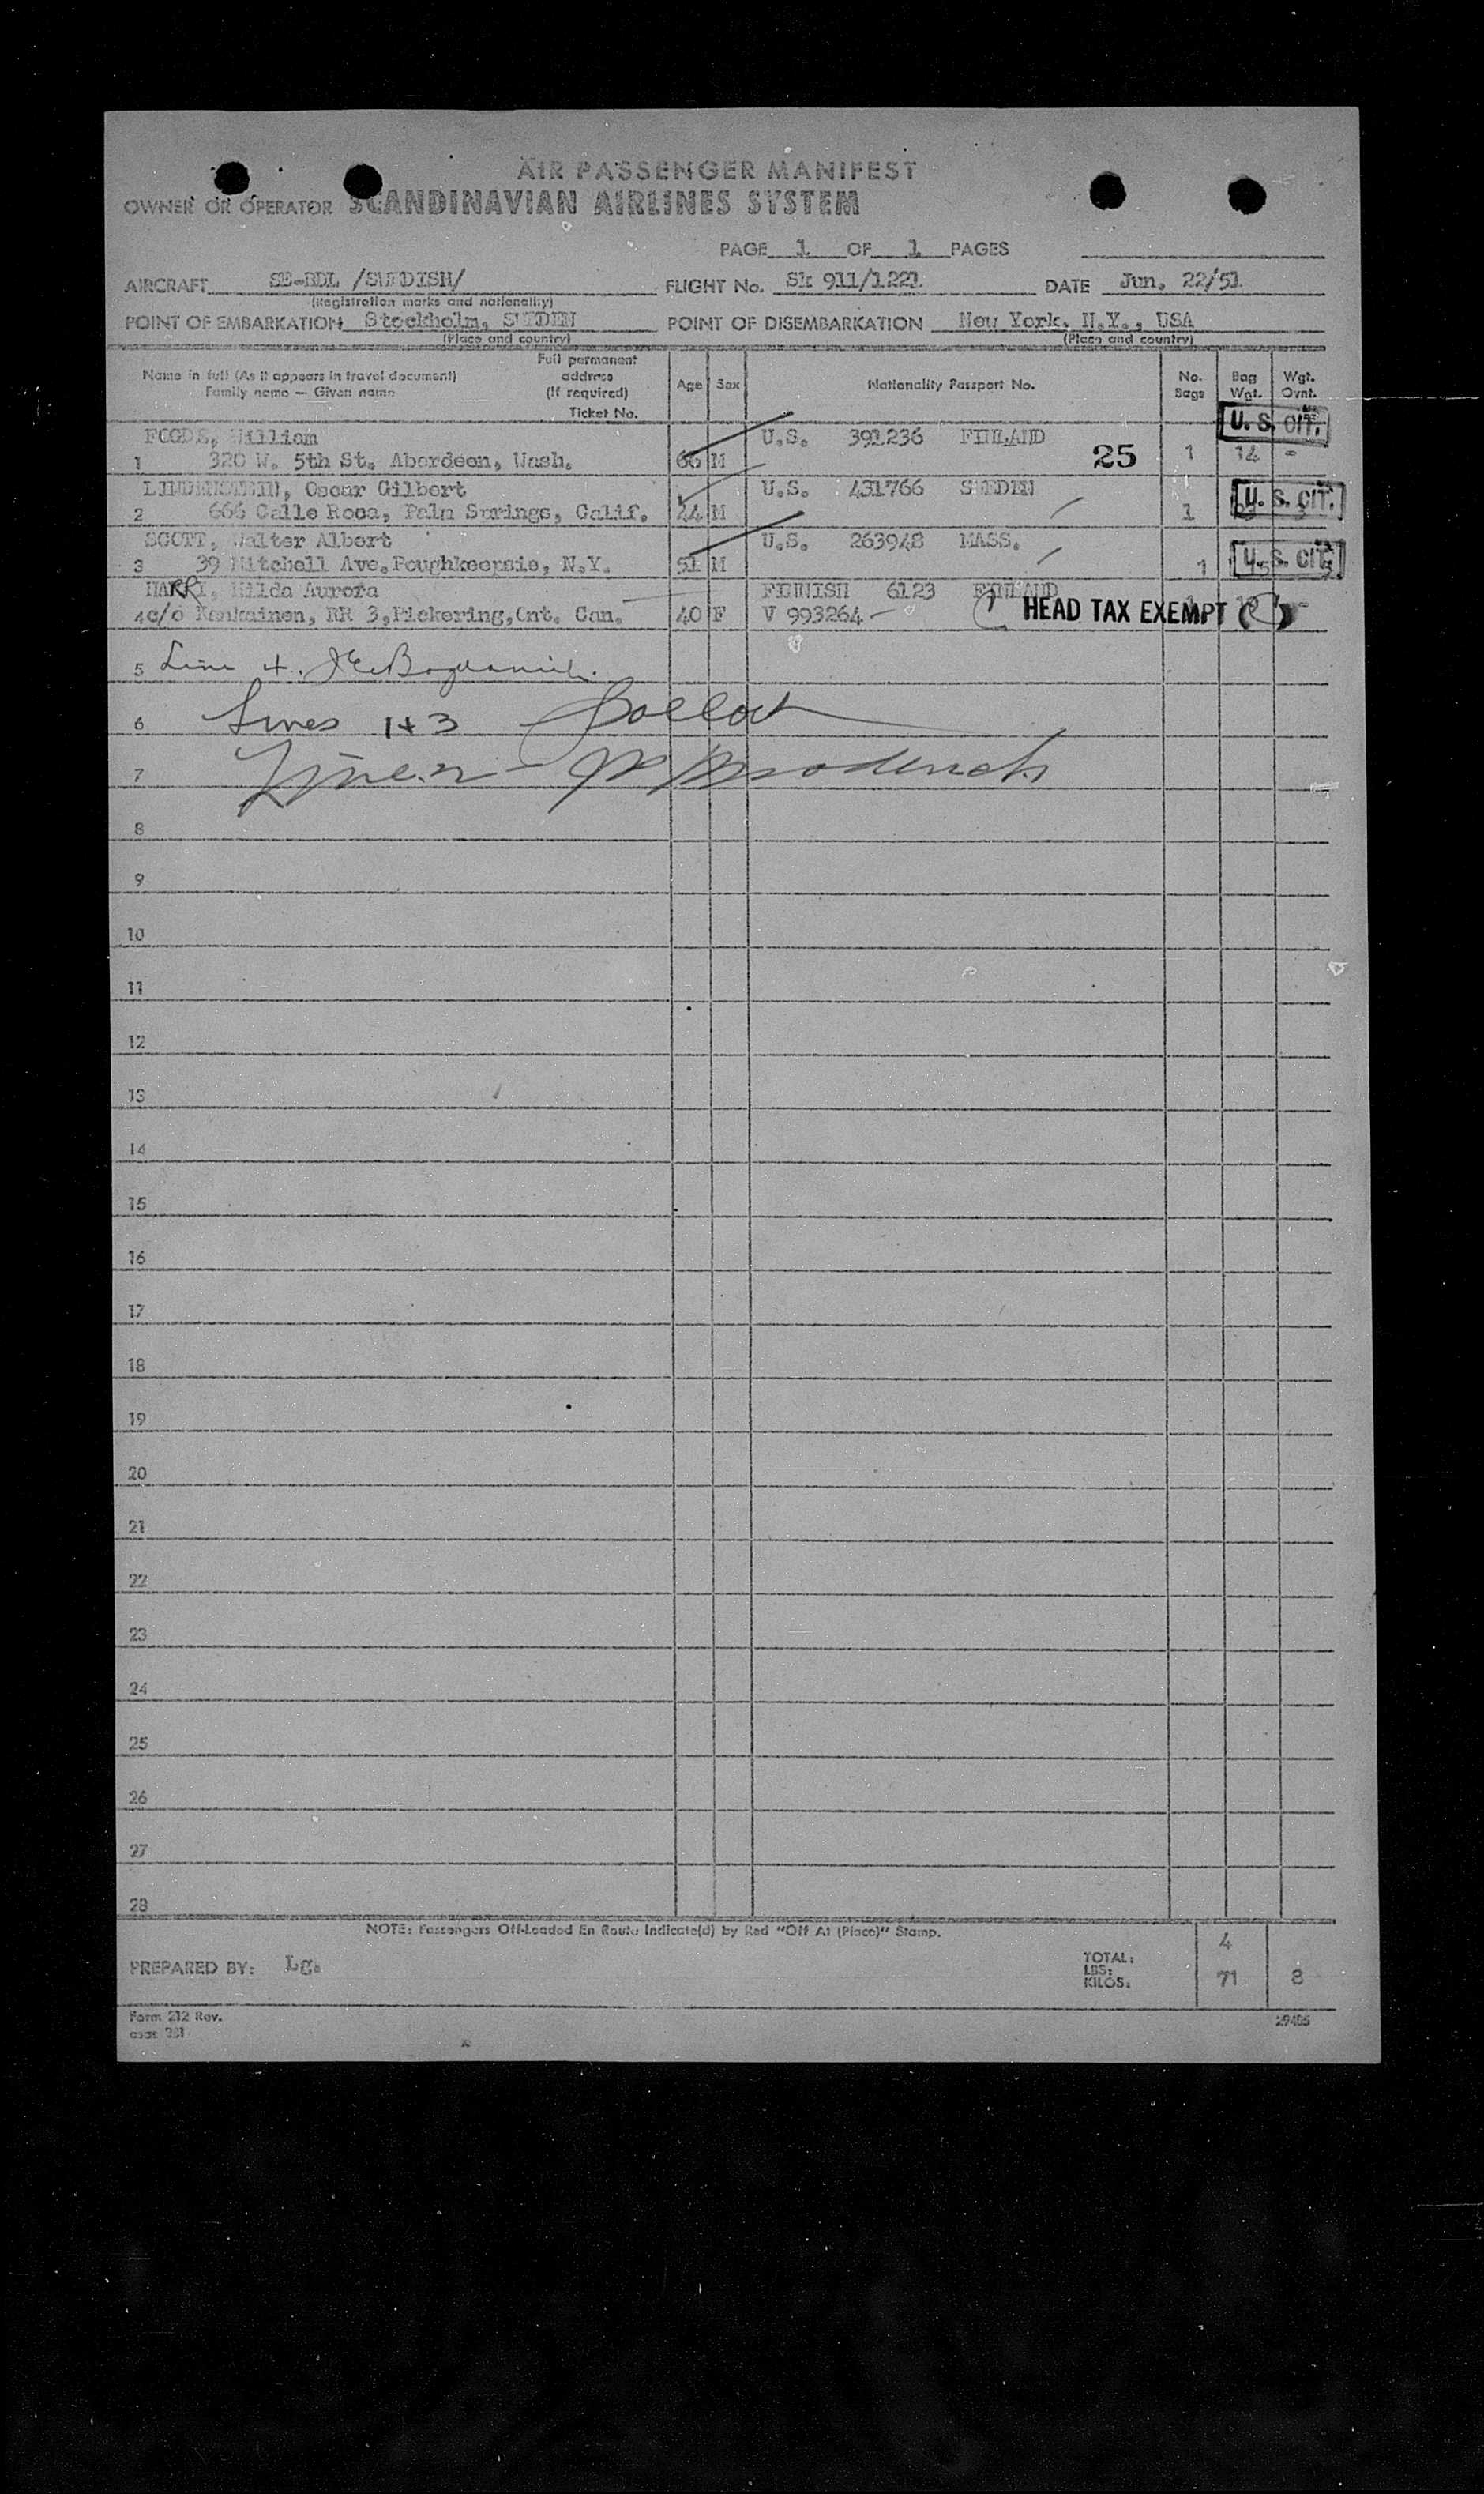 AIR PASSENGER MANIFEST
OWNER OR OPERATOR SCANDINAVIAN AIRLINES SYSTEM
PAGE 1 OF 1 PAGES
AIRCRAFT SE-BDL /SWEDISH/ FLIGHT No. SK 911/1221 DATE Jun. 22/51
(Registration marks and nationality)
POINT OF EMBARKATION Stockholm, SWEDEN POINT OF DISEMBARKATION New York, N.Y., USA
(Place and country) (Place and country)
Name in full (As it appears in travel document) Family name — Given name Full permanent address (If required) Ticket No. Age Sex Nationality Passport No. No. Bags Bag Wgt. Wgt. Ovnt.
William U.S. 391236 FINLAND U. S. CIT.
1 320 W. 5th St. Aberdeen, Wash. 66 M 25 1 14 -
Oscar Gilbert U.S. 431766 SWEDEN
2 666 Calle Roca, Palm Springs, Calif. 44 M 1 U. S. CIT.
SCOTT, Walter Albert U.S. 263948 MASS.
3 39 Mitchell Ave, Poughkeepsie, N.Y. 51 M 1 U. S. CIT.
HARRI, Hilda Aurora FINNISH 6123 FINLAND
4 c/o Kankainen, RR 3, Pickering, Ont. Can. 40 F V 993264 HEAD TAX EXEMPT
5 Line 4.
6 Lines 1+3
7
8
9
10
11
12
13
14
15
16
17
18
19
20
21
22
23
24
25
26
27
28
NOTE: Passengers Off-Loaded En Route Indicate(d) by Red "Off At (Place)" Stamp.
PREPARED BY: Lg. TOTAL: 4
LBS:
KILOS: 71 8
Form 212 Rev. 29405